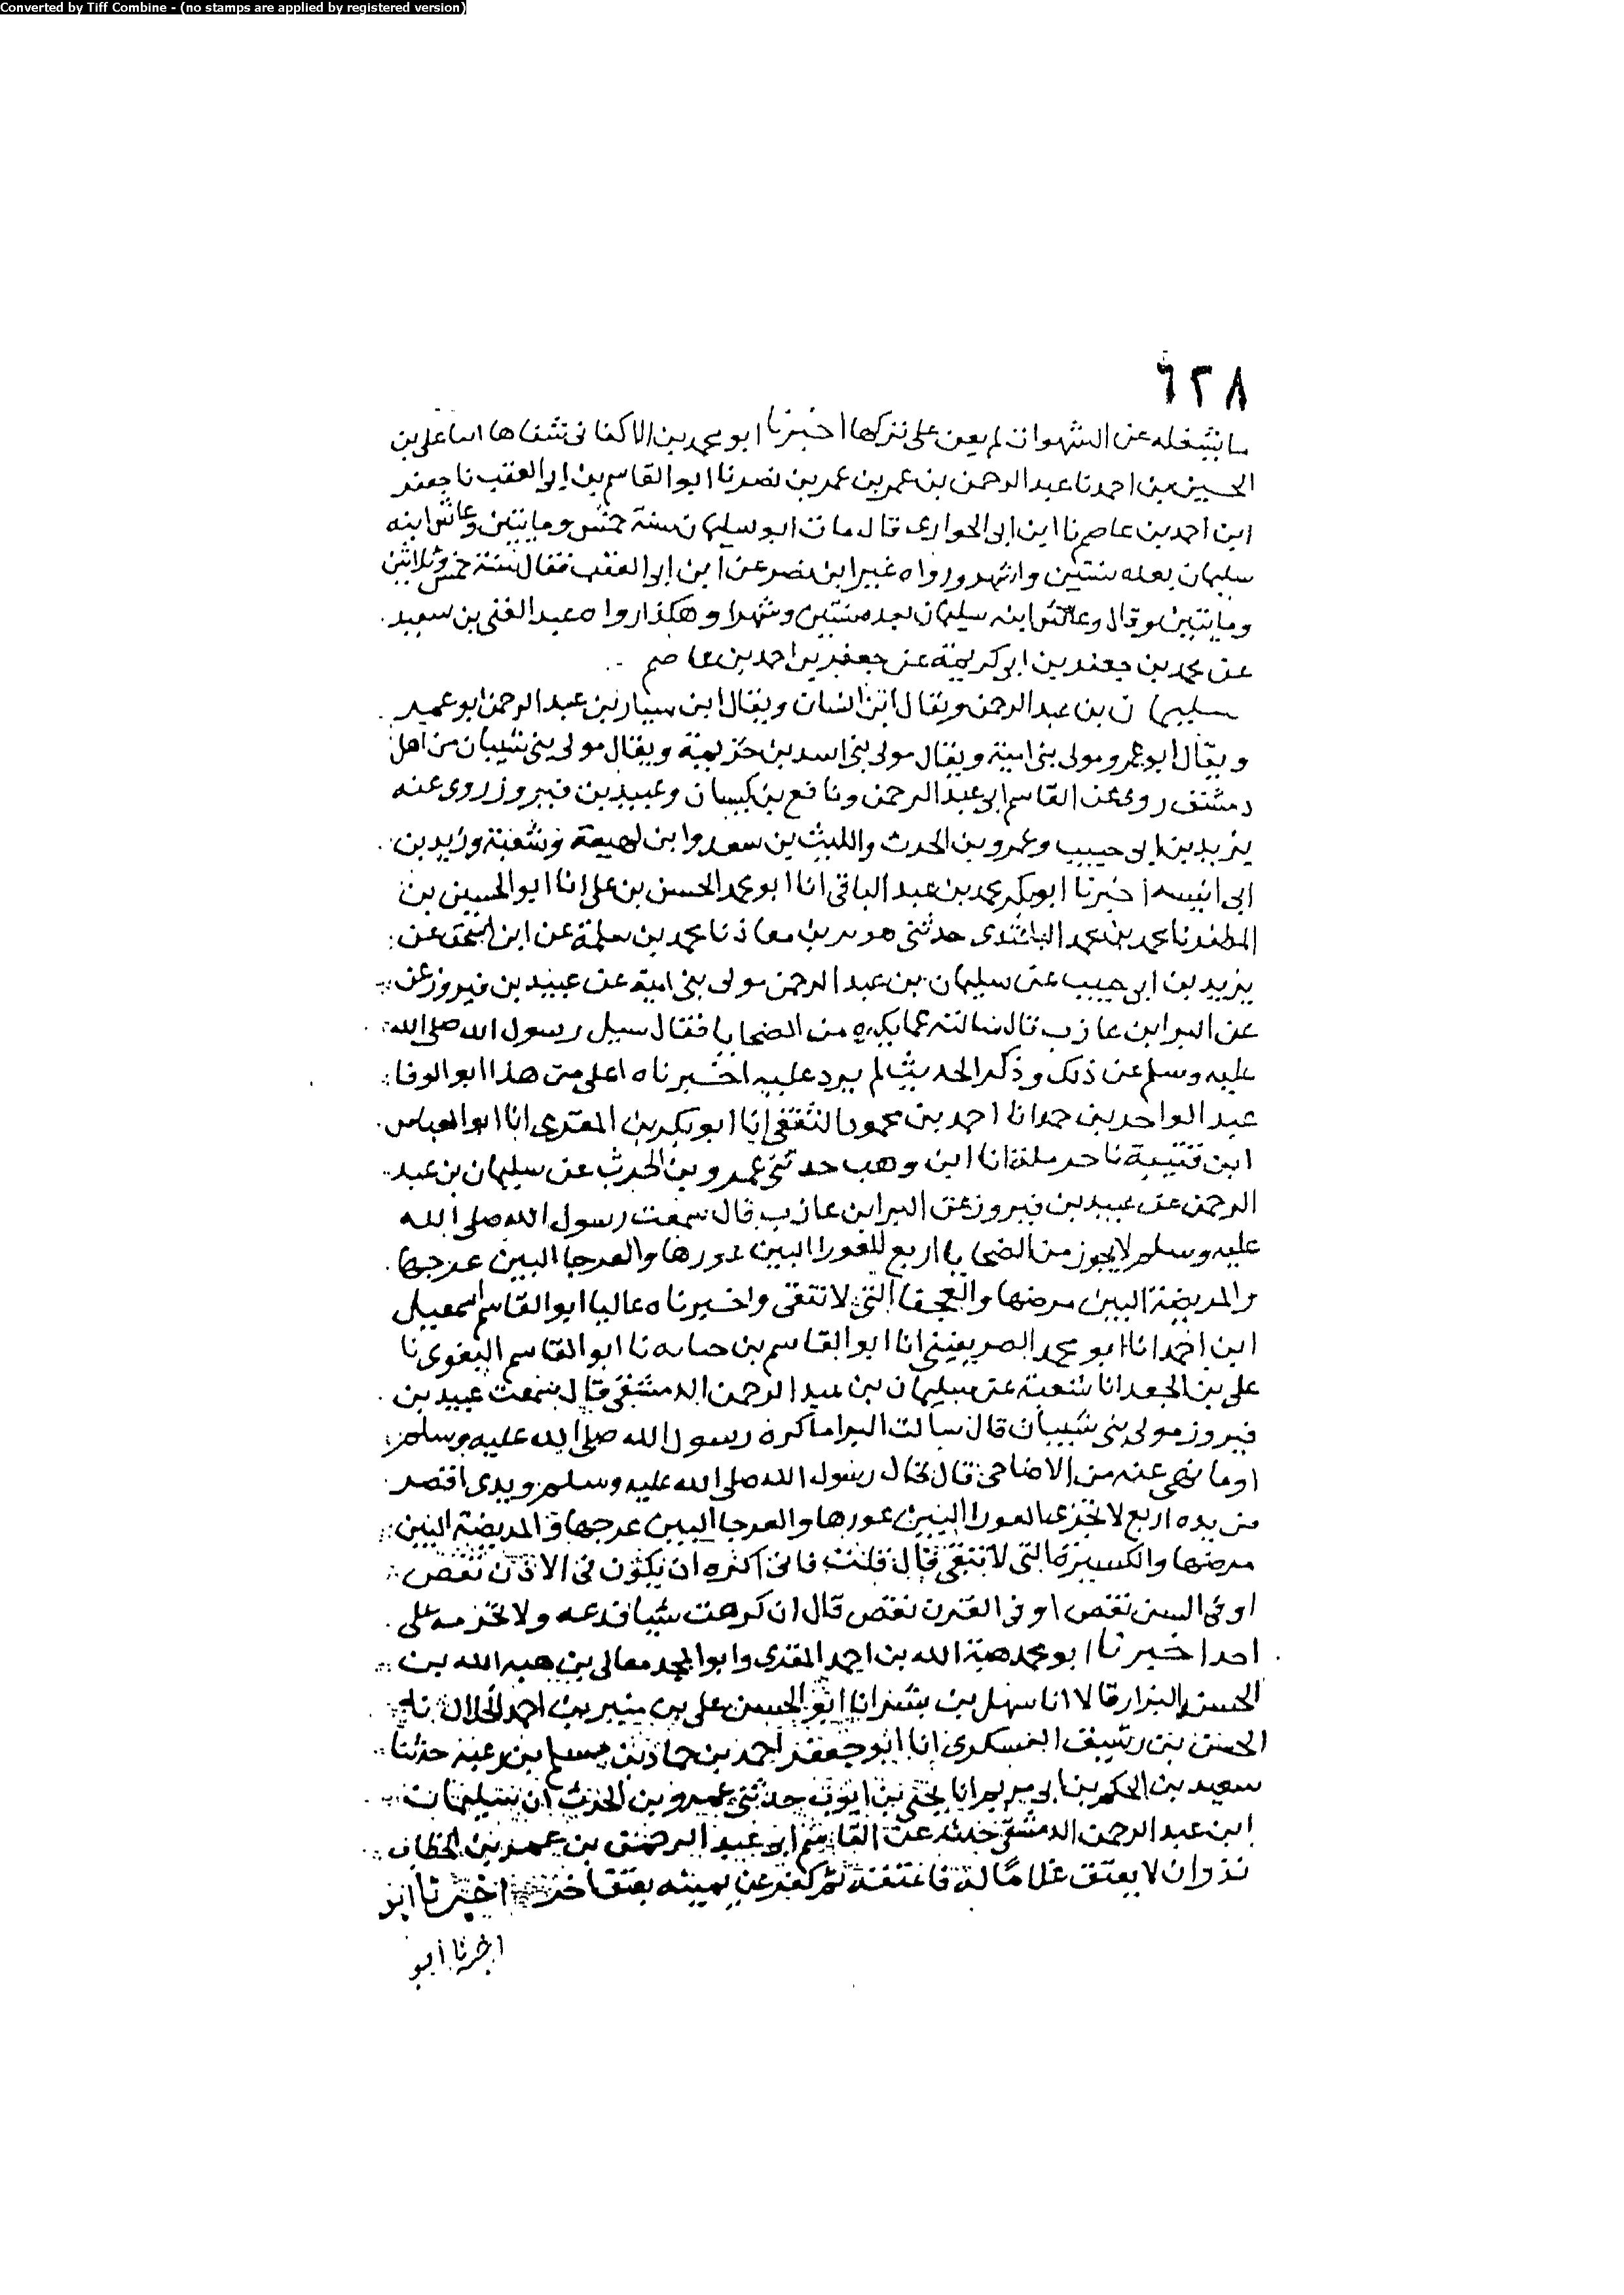 Converted by Tiff Combine - (no stamps are applied by registered version)
٦٢٨
ما يشغله عن الشهوات لم يعن على تركها اخبرنا ابو محمد بن الاكفانى شفاها اسا على بن
الحسين بن احمد نا عبد الرحمن بن عمر بن عمر بن نصر نا ابو القاسم بن ابى العقب نا جعفر
ابن احمد بن عاصم نا ابن ابى الحوارى قال مات ابو سليمان سنة خمس ومايتين وعاش ابنه
سليمان بعده سنتين واشهر ورواه غير ابن نصر عن ابن ابى العقب فقال سنة خمس وثلاثين
ومايتين وقال وعاش ابنه سليمان بعده سنتين وشهرا وهكذا رواه عبد الغنى بن سعيد
عن محمد بن جعفر بن ابى كريمة عن جعفر بن احمد بن عاصم
سليمان بن عبد الرحمن ويقال ابن انسان ويقال ابن سيار بن عبد الرحمن ابو عمير
ويقال ابو عمرو مولى بنى امية ويقال مولى بنى اسد بن خزيمة ويقال مولى بنى شيبان من اهل
دمشق روى عن القاسم ابى عبد الرحمن ونافع بن كيسان وعبيد بن فيروز روى عنه
يزيد بن ابى حبيب وعمرو بن الحرث والليث بن سعد وابن لهيعة وشعبة وزيد بن
ابى انيسه اخبرنا ابو بكر محمد بن عبد الباقى انا ابو محمد الحسن بن على انا ابو الحسين بن
المظفر نا محمد بن محمد الباغندى حدثنى هوبر بن معاذ نا محمد بن سلمة عن ابن اسحق عن
يزيد بن ابى حبيب عن سليمان بن عبد الرحمن مولى بنى امية عن عبيد بن فيروز عن
عن البرا بن عازب قال سالته عما يكره من الضحايا فقال سيل رسول الله صلى الله
عليه وسلم عن ذلك وذكر الحديث لم يرد عليه اخبرناه اعلى من هذا ابو الوفا
عبد الواحد بن حمد انا احمد بن محمود الثقفى انا ابو بكر بن المقرى انا ابو العباس
ابن قتيبة نا حرملة انا ابن وهب حدثنى عمرو بن الحرث عن سليمان بن عبد
الرحمن عن عبيد بن فيروز عن البرا بن عازب قال سمعت رسول الله صلى الله
عليه وسلم لا يجوز من الضحايا اربع للعورا البين عورها والعرجا البين عرجها
والمريضة البين مرضها والعجفا التى لا تنقى واخبرناه عاليا ابو القاسم اسمعيل
ابن احمد انا ابو محمد الصريفينى انا ابو القاسم بن حبابه نا ابو القاسم البغوى نا
على بن الجعد انا شعبة عن سليمان بن عبد الرحمن الدمشقى قال سمعت عبيد بن
فيروز مولى بنى شيبان قال سالت البرا ما كره رسول الله صلى الله عليه وسلم
او ما نهى عنه من الاضاحى قال قال رسول الله صلى الله عليه وسلم ويدى اقصر
من يده اربع لا تجزى العورا البين عورها والعرجا البين عرجها والمريضة البين
مرضها والكسيرة التى لا تنقى قال قلت فانى اكره ان يكون فى الاذن نقص
او فى السن نقص او فى القرن نقص قال ان كرهت شيا فدعه ولا تحرمه على
احد اخبرنا ابو محمد هبة الله بن احمد المقرى وابو المجد معالى بن هبه الله بن
الحسن البزار قالا انا سهل بن بشر انا ابو الحسن على بن منير بن احمد الخلال نا
الحسن بن رشيق العسكرى انا ابو جعفر احمد بن حماد بن مسلم بن زغبة حدثنا
سعيد بن الحكم بن ابى مريم انا يحيى بن ايوب حدثنى عمرو بن الحرث ان سليمان
ابن عبد الرحمن الدمشقى حدثه عن القاسم ابى عبد الرحمن بن عمر بن الخطاب
نذر ان لا يعتق غلاما له فاعتقه ثم كفر عن يمينه بعتق اخر اخبرنا ابو
اخبرنا ابو